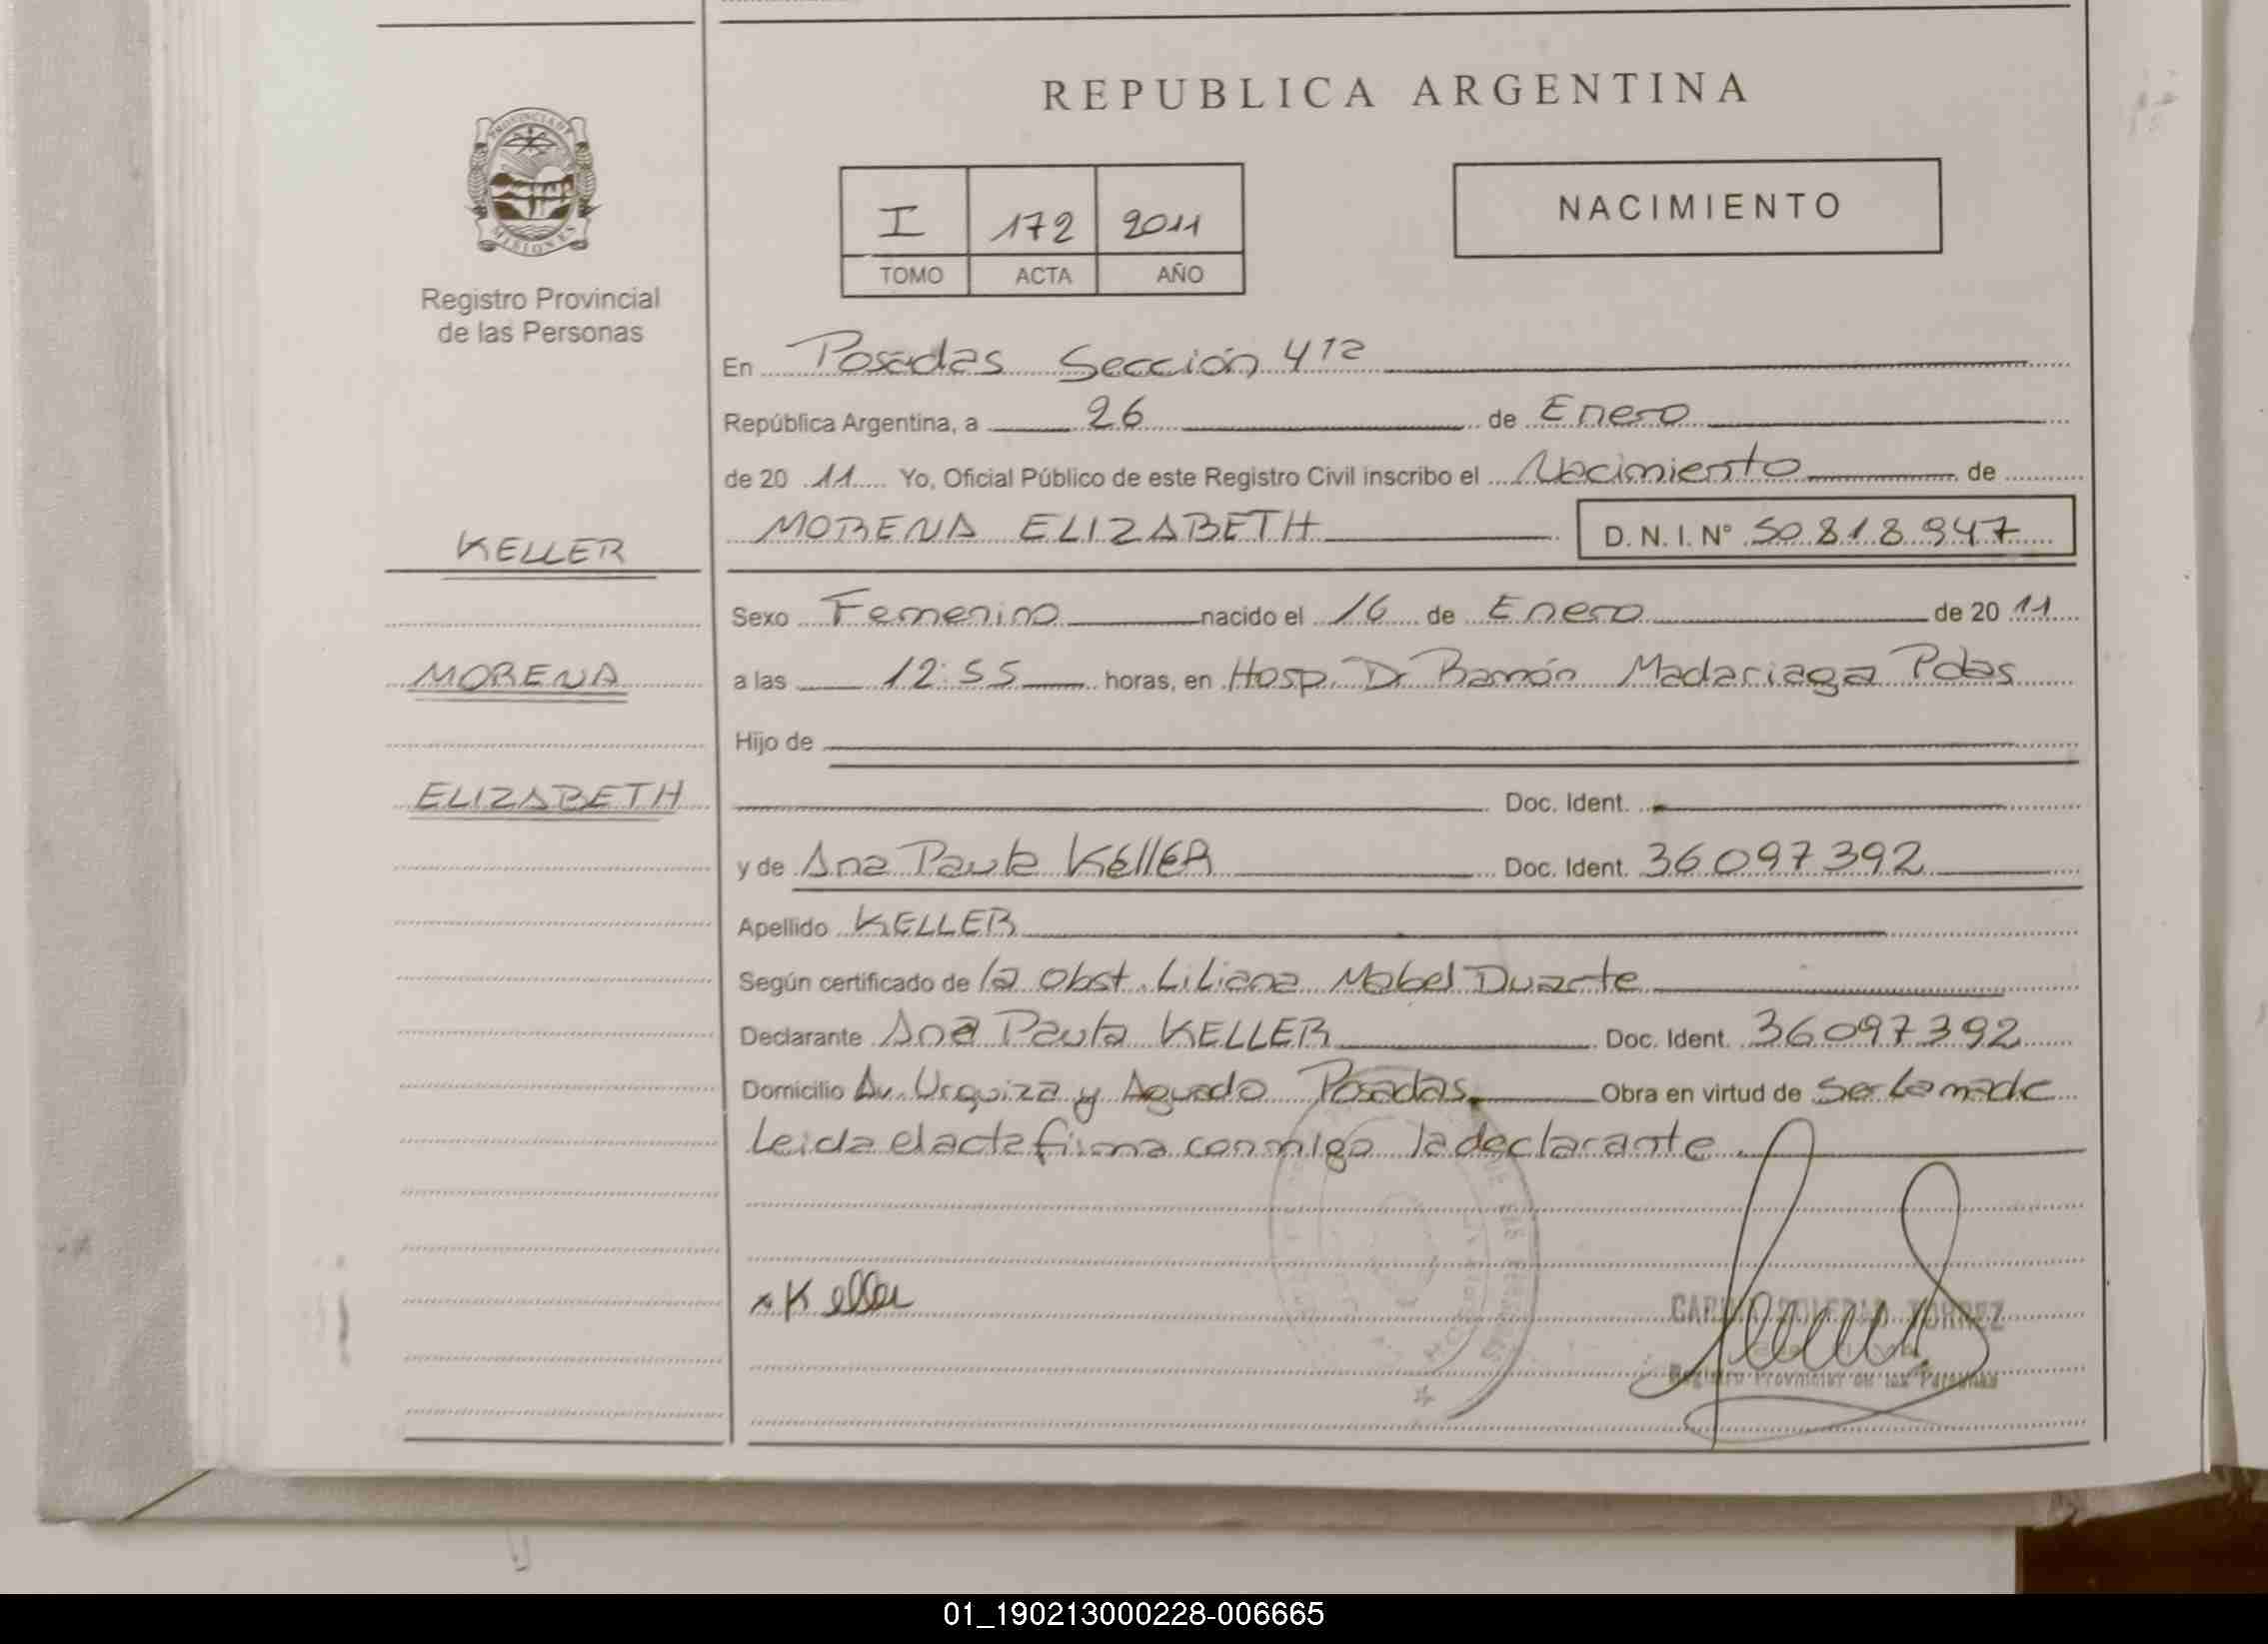 REPUBLICA ARGENTINA
PROVINCIA DE
MISIONES
Registro Provincial
de las Personas
I 172 2011
TOMO ACTA AÑO
NACIMIENTO
En Posadas Sección 4ta
República Argentina, a 26 de Enero
de 20 11 Yo, Oficial Público de este Registro Civil inscribo el Nacimiento de
KELLER
MORENA ELIZABETH D.N.I. Nº 50.818.947
Sexo Femenino nacido el 16 de Enero de 20 11
MORENA
a las 12:55 horas, en Hosp. Dr Ramón Madariaga Pdas
Hijo de
ELIZABETH
Doc. Ident.
y de Ana Paula KELLER Doc. Ident. 36097392
Apellido KELLER
Según certificado de la Obst. Liliana Mabel Duarte
Declarante Ana Paula KELLER Doc. Ident. 36097392
Domicilio Av. Urquiza y Aguado Posadas. Obra en virtud de ser la madre
Leida el acta firma conmigo la declarante
x Keller
TORREZ
Registro Provincial de las Personas
01_190213000228-006665